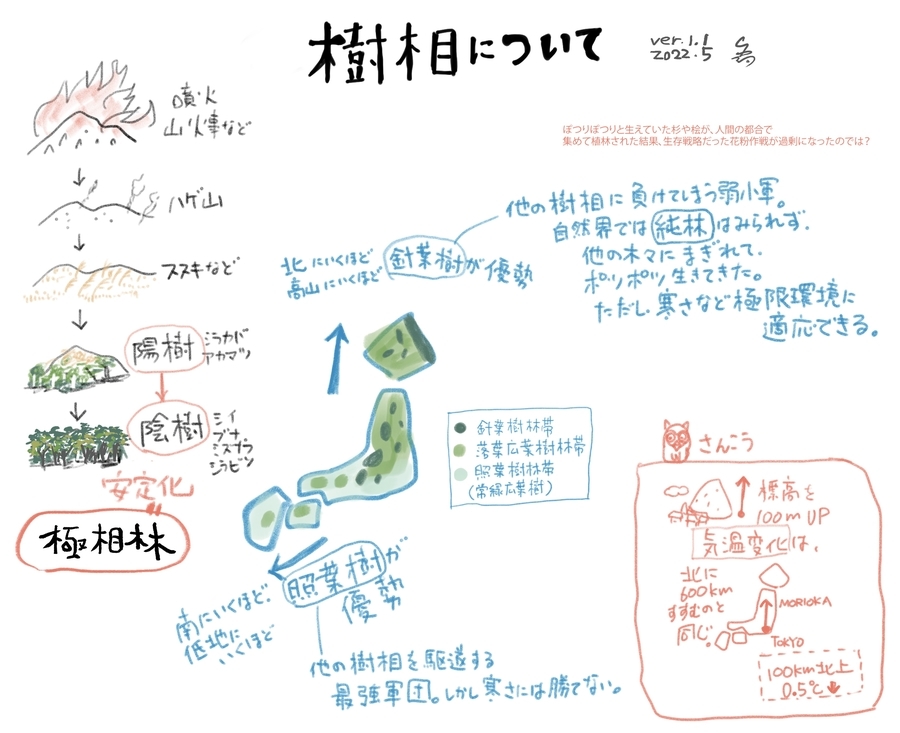 樹相について
ver.1.1
2022.5
ぽつりぽつりと生えていた杉や桧が、人間の都合で
集めて植林された結果、生存戦略だった花粉作戦が過剰になったのでは?
噴火
山火事など
ハゲ山
ススキなど
陽樹
シラカバ
アカマツ
陰樹
シイ
ブナ
ミズナラ
シラビソ
安定化
極相林
他の樹相に負けてしまう弱小軍。
自然界では純林はみられず、
他の木々にまぎれて、
ポツポツ生きてきた。
ただし寒さなど極限環境に
適応できる。
北にいくほど
高山にいくほど
針葉樹が優勢
針葉樹林帯
落葉広葉樹林帯
照葉樹林帯
(常緑広葉樹)
照葉樹が
優勢
南にいくほど、
低地に
いくほど
他の樹相を駆逐する
最強軍団。しかし寒さには勝てない。
さんこう
標高を
100m UP
気温変化は、
北に
600km
すすむのと
同じ。
MORIOKA
TOKYO
100km北上
0.5℃↓